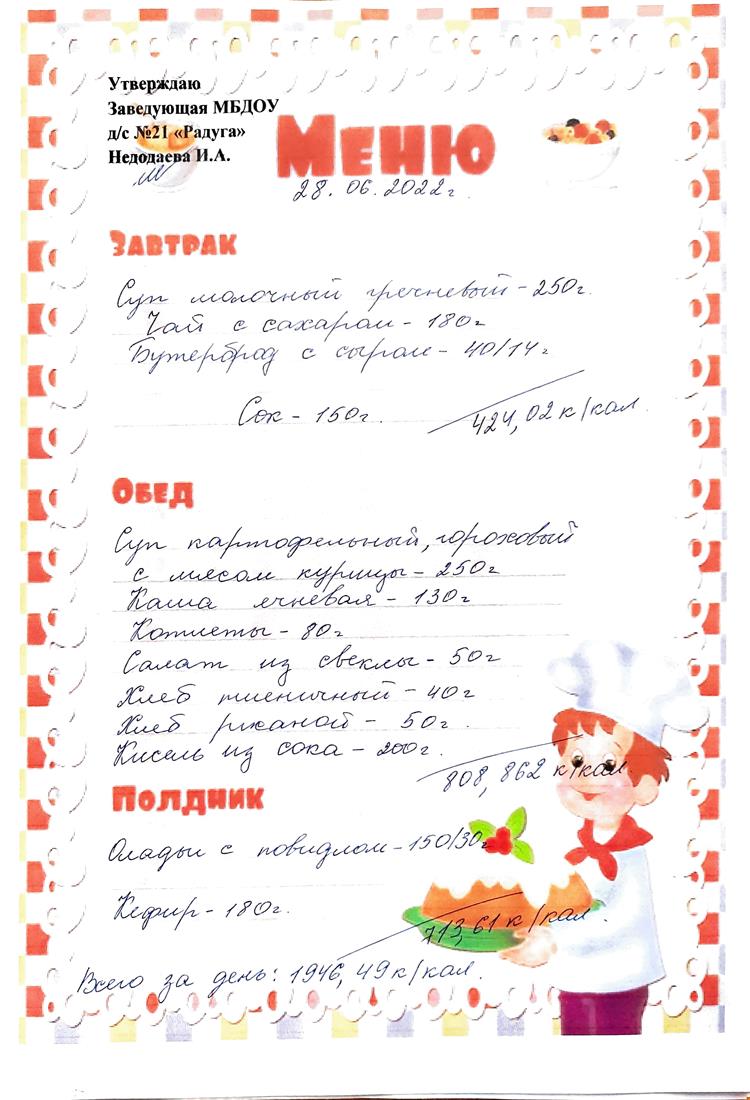 Утверждаю
Заведующая МБДОУ
д/с №21 «Радуга»
Недодаева И.А.
Меню
28.06.2022г.
Завтрак
Суп молочный гречневый - 250г.
Чай с сахаром - 180г
Бутерброд с сыром - 40/14г
Сок - 150г.
424,02 к/кал.
Обед
Суп картофельный, гороховый
с мясом курицы - 250г
Каша ячневая - 130г
Котлеты - 80г
Салат из свеклы - 50г
Хлеб пшеничный - 40г
Хлеб ржаной - 50г.
Кисель из сока - 200г.
808,862 к/кал.
Полдник
Олады с повидлом - 150/30г
Кефир - 180г.
713,61 к/кал.
Всего за день: 1946,49 к/кал.